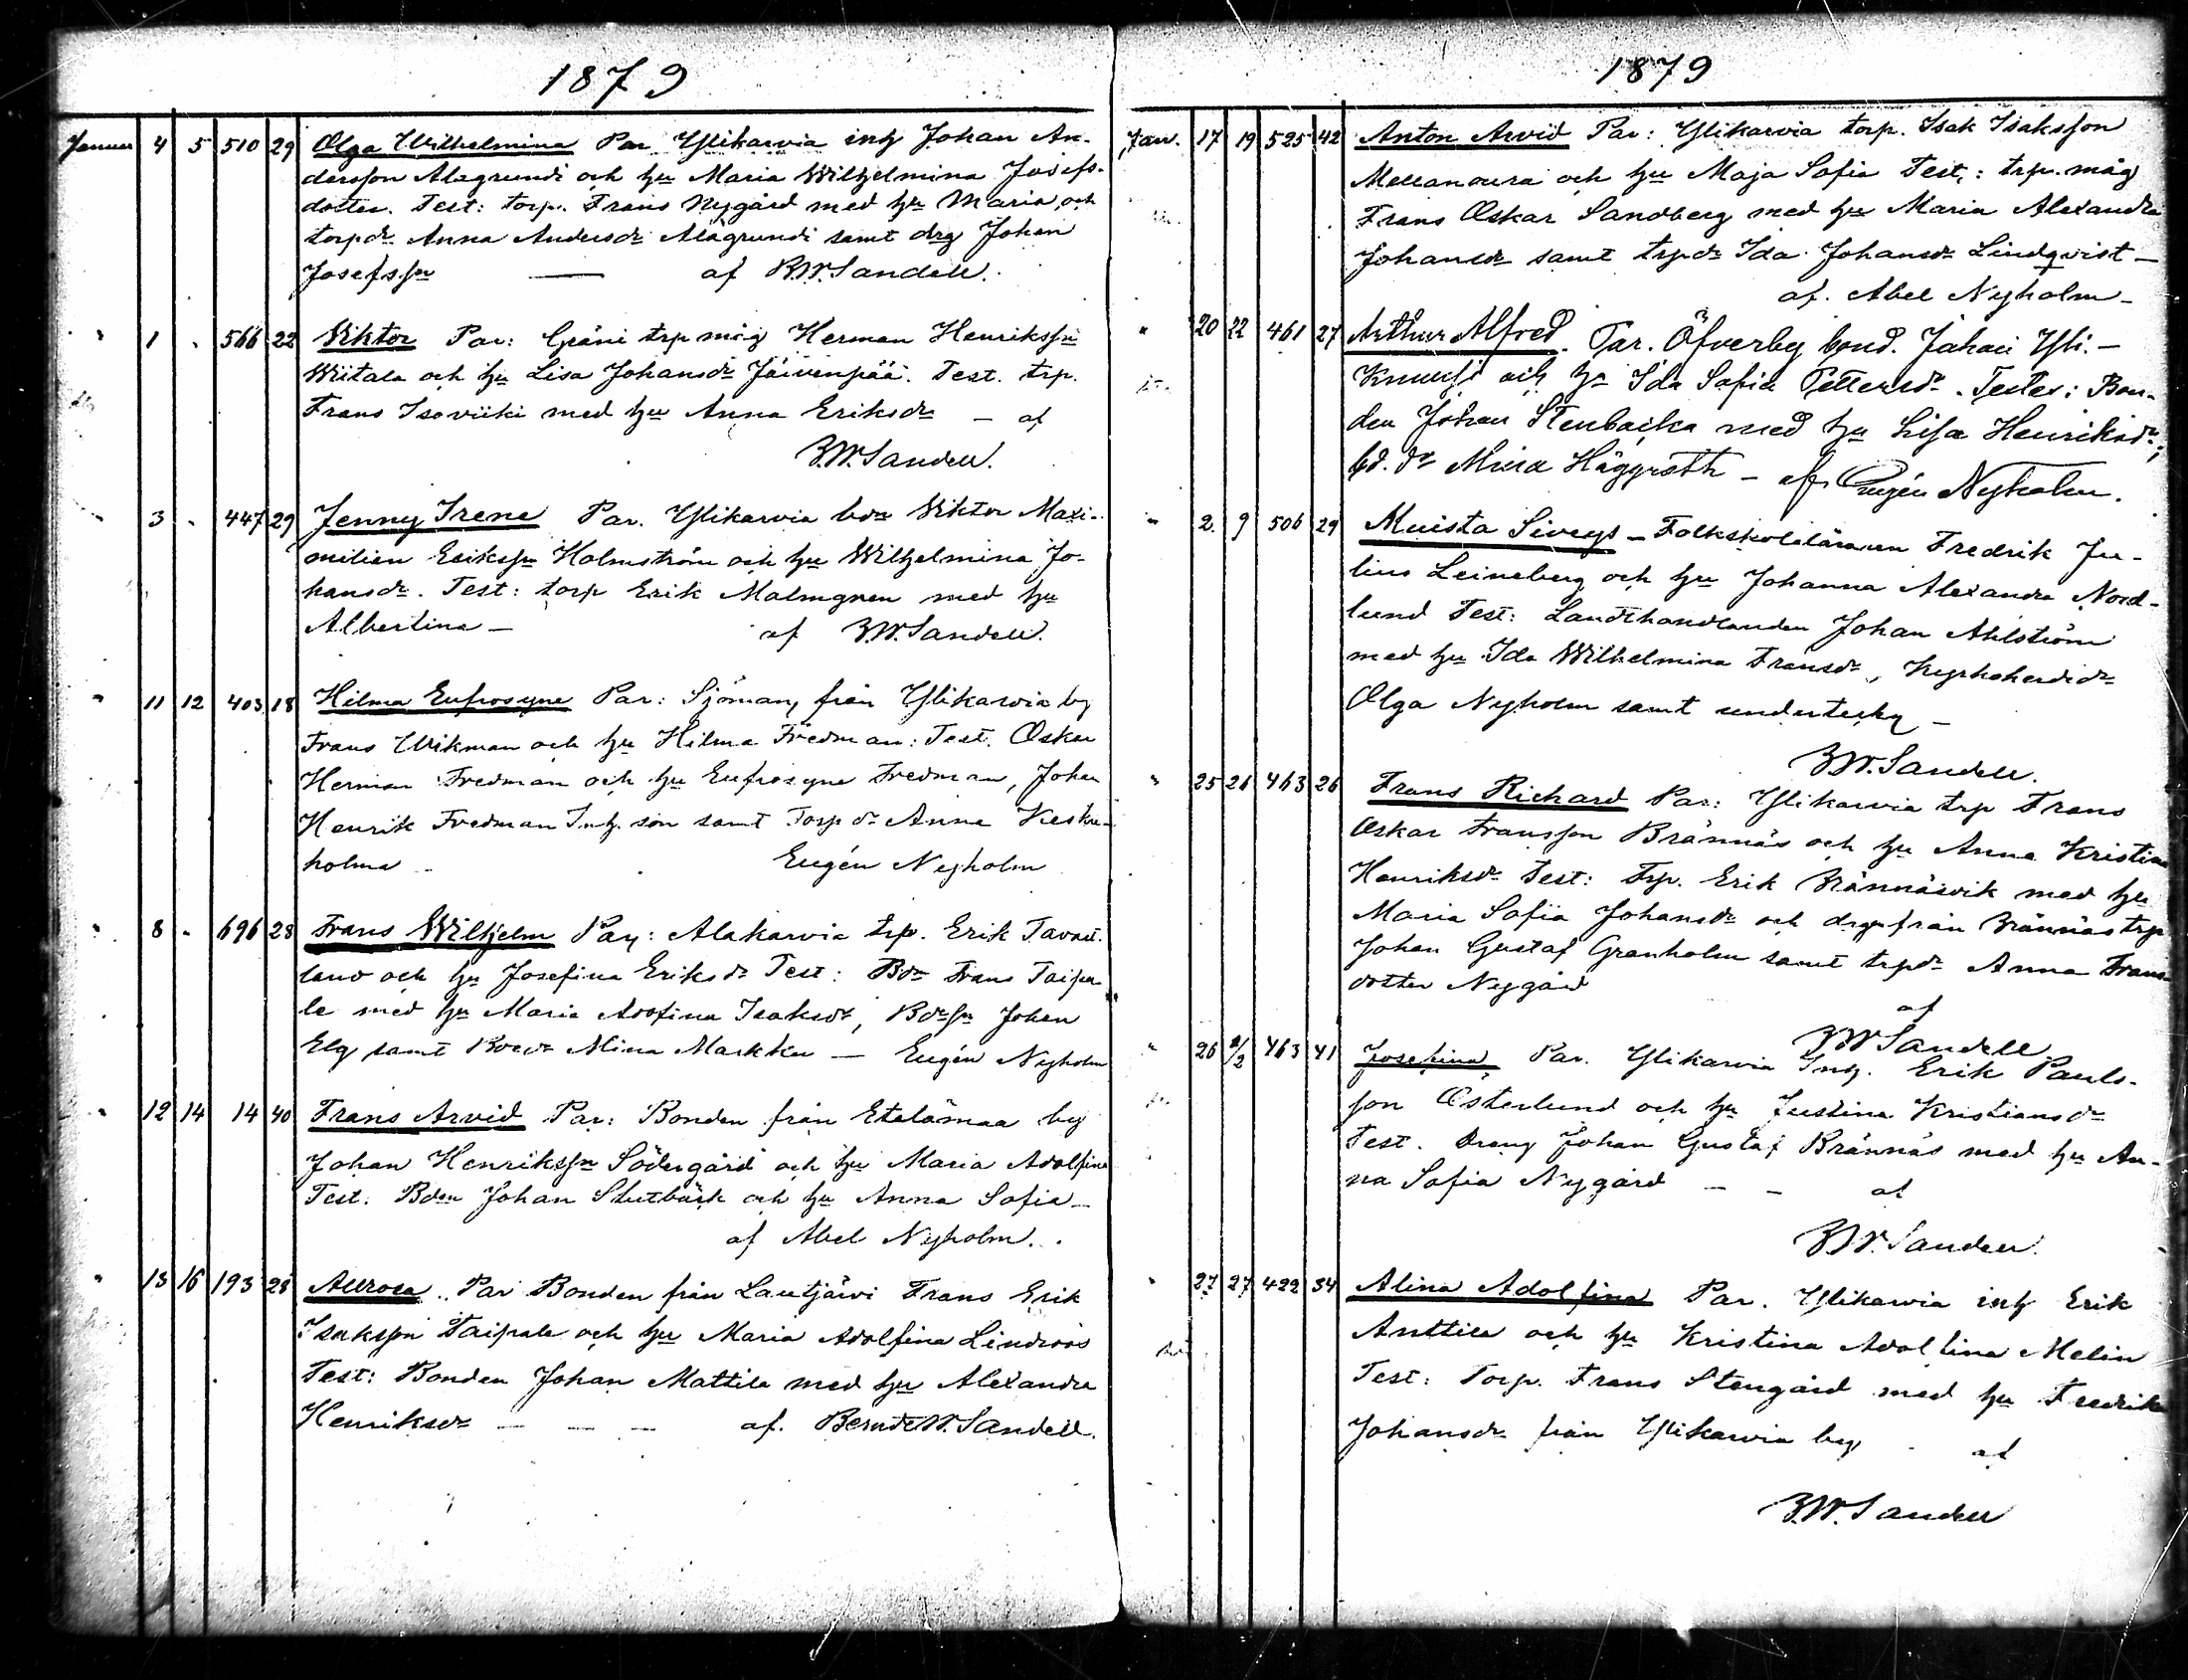 1879
Januar 4 5 510 29 Olga Wilhelmina Par Ylikarvia inh Johan An-
dersson Alagrundi och hu Maria Wilhelmina Josefs-
dotter. Test: torp. Frans Nygård med hu Maria, och
torpdr Anna Andersdr Alagrundi samt drg Johan
Josefssn — af B.W. Sandell.
" 1 " 566 22 Viktor Par: trp måg Herman Henrikssn
Wiitala och hu Lisa Johansdr Jäivenpää. Test. trp.
Frans Isoviiki med hu Anna Eriksdr — af
B.W. Sandell.
" 3 " 447 29 Jenny Irene Par. Ylikarvia bdn Viktor Maxi-
milian Erikssn Holmström och hu Wilhelmina Jo-
hansdr. Test: torp Erik Malmgren med hu
Albertina — af B.W. Sandell.
" 11 12 403 18 Hilma Eufrosyne Par: Sjöman från Ylikarvia by
Frans Wikman och hu Hilma Fredman: Test. Oskar
Herman Fredman och hu Eufrosyne Fredman, Johan
Henrik Fredman Inh. son samt Torp dr Anna Keski-
holma Eugén Nyholm
" 8 " 696 28 Frans Wilhelm Par: Alakarvia trp. Erik
och hu Josefina Eriksdr Test: Bdn Frans Taipa-
le med hu Maria Adofina Isaksdr, Bdesn Johan
Elg samt Bdedr Mina Markku — Eugén Nyholm
" 12 14 14 40 Frans Arvid Par: Bonden från Etelämaa by
Johan Henrikssn Södergård och hu Maria Adolfina
Test. Bden Johan Slutbäck och hu Anna Sofia —
af Abel Nyholm.
" 13 16 193 28 Aurora. Par Bonden från Lautjärvi Frans Erik
Isaksson Taipale och hu Maria Adolfina Lindroos
Test: Bonden Johan Mattila med hu Alexandra
Henriksdr — — — af. Bernd W. Sandell.
1879
Jan. 17 19 525 42 Anton Arvid Par: Ylikarvia torp. Isak Isaksson
Mellanoura och hu Maja Sofia Test.: trp. måg
Frans Oskar Sandberg med hu Maria Alexandra
Johansdr samt trpdr Ida Johansdr Lindqvist —
af. Abel Nyholm —
" 20 22 461 27 Arthur Alfred. Par. Öfverby bond. Johan Yli-
Knuussi och hu Ida Sofia Pettersdr. Testes: Bon-
den Johan Stenbacka med hu Lisa Henriksdr,
bd. dr Mina Häggroth — af Eugén Nyholm.
" 2. 9 506 29 Muista Siveys — Folkskoleläraren Fredrik Ju-
lius Leineberg och hu Johanna Alexandra Nord-
lund Test: Landthandlanden Johan Ahlström
med hu Ida Wilhelmina Fransdr, Kyrkoherdedr
Olga Nyholm samt underteckn —
B.W. Sandell.
" 25 26 463 26 Frans Richard Par: Ylikarvia trp Frans
Oskar Fransson Brännäs och hu Anna Kristina
Henriksdr Test: Trp. Erik Brännäsvik med hu
Maria Sofia Johansdr och drgn från Brännäs trp
Johan Gustaf Granholm samt trpdr Anna Frans-
dotter Nygård
af
B.W. Sandell
" 26 2/2 463 41 Josefina, Par. Ylikarvia Inh. Erik Pauls-
son Österlund och hu Justina Kristiansdr
Test. Dreng Johan Gustaf Brännäs med hu An-
na Sofia Nygård — — af
B.W. Sandell.
" 27 27 422 34 Alina Adolfina Par. Ylikarvia inh Erik
Anttila och hu Kristina Adolfina Melin
Test: Torp. Frans Stengård med hu Fredrika
Johansdr från Ylikarvia by af
B.W. Sandell